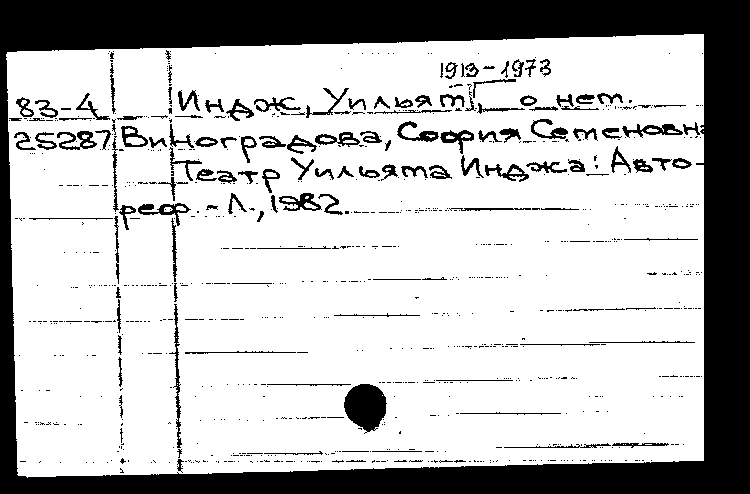 1913-1973
83-4 Индж, Уильям, о нем.
25287 Виноградова, София Семеновна
Театр Уильяма Инджа: Авто-
реф. - Л., 1982.